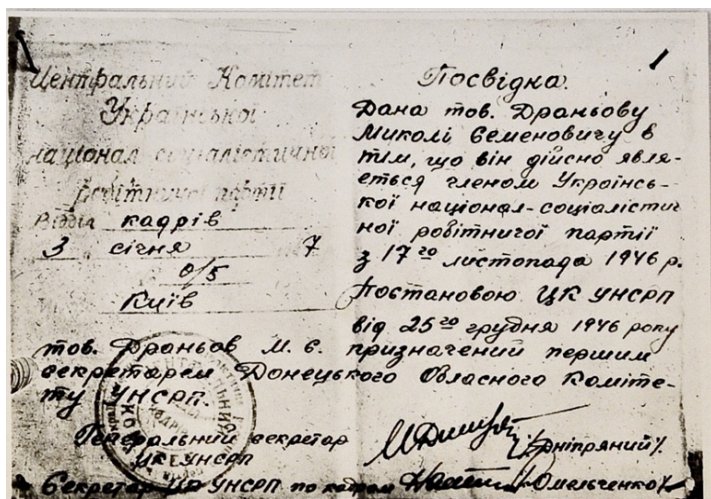 Центральний Комітет
Української
націонал соціалістичної
робітничої партії
Відділ кадрів
3 січня 7
0/5
Київ
1
Посвідка.
Дана тов. Драньову
Миколі Семеновичу в
тім, що він дійсно явля-
ється членом Українсь-
кої націонал-соціалістич
ної робітничої партії
з 17го листопада 1946 р.
Постановою ЦК УНСРП
від 25го грудня 1946 року
тов. Драньов М. Є. призначений першим
секретарем Донецького Обласного Коміте-
ту УНСРП.
Генеральний секретар
ЦК УНСРП /Дніпряний/.
Секретар ЦК УНСРП по кадрам /Омельченко/